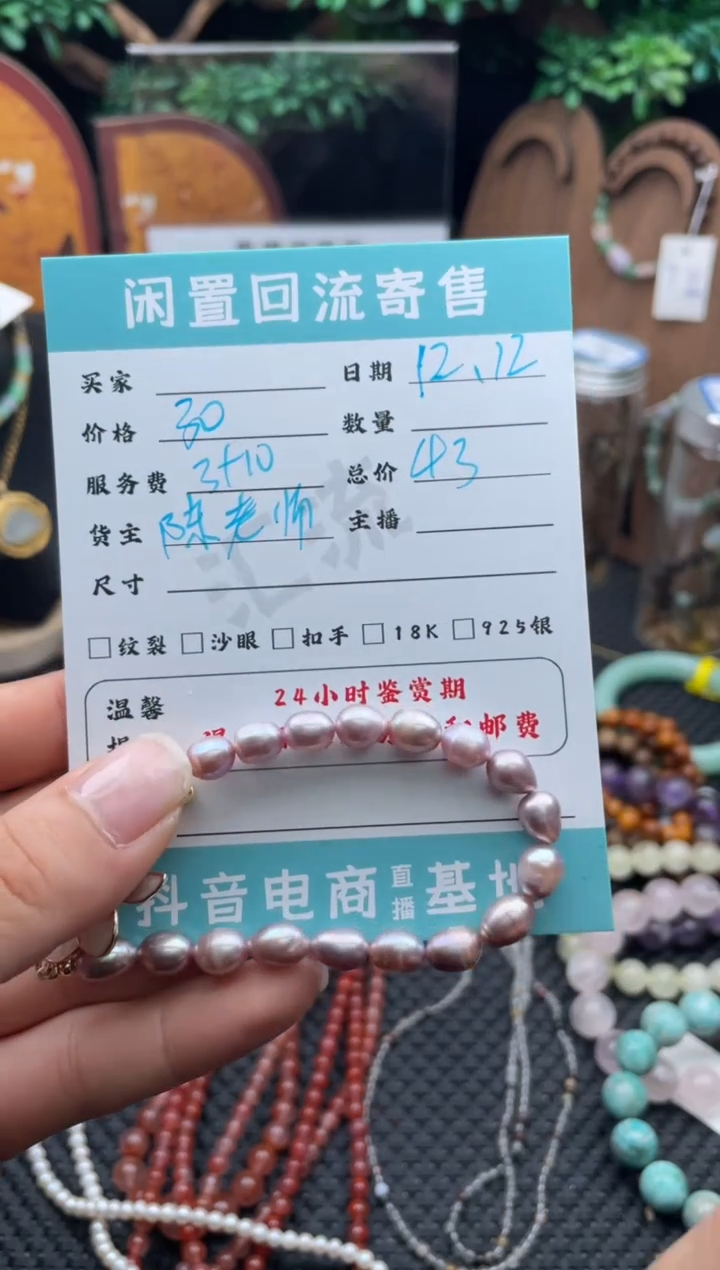 闲置回流寄售
买家 日期 12、12
价格 30 数量
服务费 3+10 总价 43
货主 陈老师 主播
汇流
尺寸
□纹裂 □沙眼 □扣手 □18K □925银
温馨 24小时鉴赏期
邮费
抖音电商直播基地